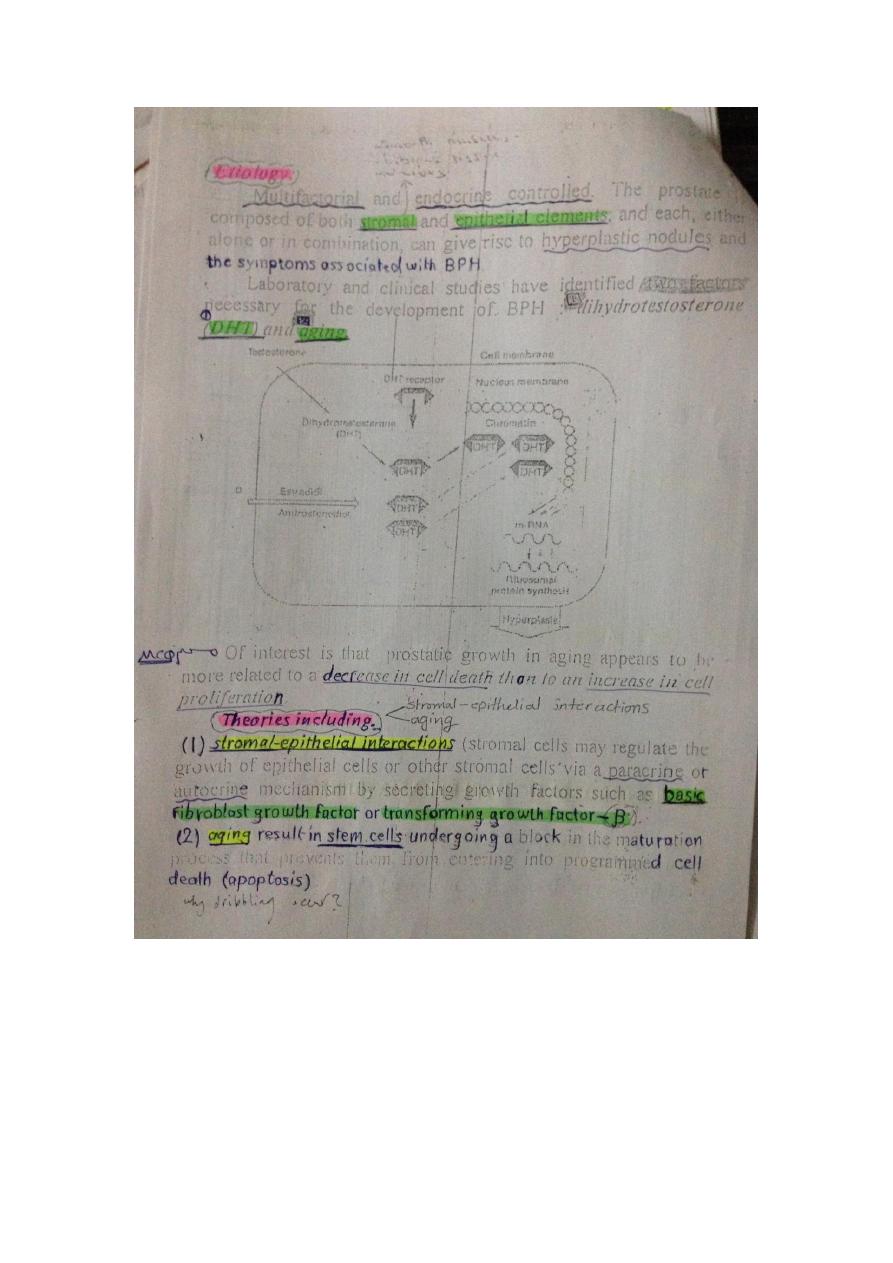 Etiology:
Multifactorial and endocrine controlled. The prostate
composed of both stromal and epithelial elements, and each, either
alone or in combination, can give rise to hyperplastic nodules and
the symptoms associated with BPH
Laboratory and clinical studies have identified two factors
necessary for the development of BPH : dihydrotestosterone
(DHT) and aging
Testosterone
Cell membrane
DHT receptor
Nucleus membrane
Dihydrotestosterone
(DHT)
Chromatin
DHT DHT
DHT DHT
DHT
DHT
Estradiol
Androstenediol
m-RNA
Ribosomal
protein synthesis
Hyperplasie
MCQ Of interest is that prostatic growth in aging appears to be
more related to a decrease in cell death than to an increase in cell
proliferation
Theories including.
Stromal-epithelial interactions
aging
(1) stromal-epithelial interactions (stromal cells may regulate the
growth of epithelial cells or other stromal cells via a paracrine or
autocrine mechanism by secreting growth factors such as basic
fibroblast growth factor or transforming growth factor-β).
(2) aging result in stem cells undergoing a block in the maturation
process that prevents them from entering into programmed cell
death (apoptosis)
why dribbling occur?